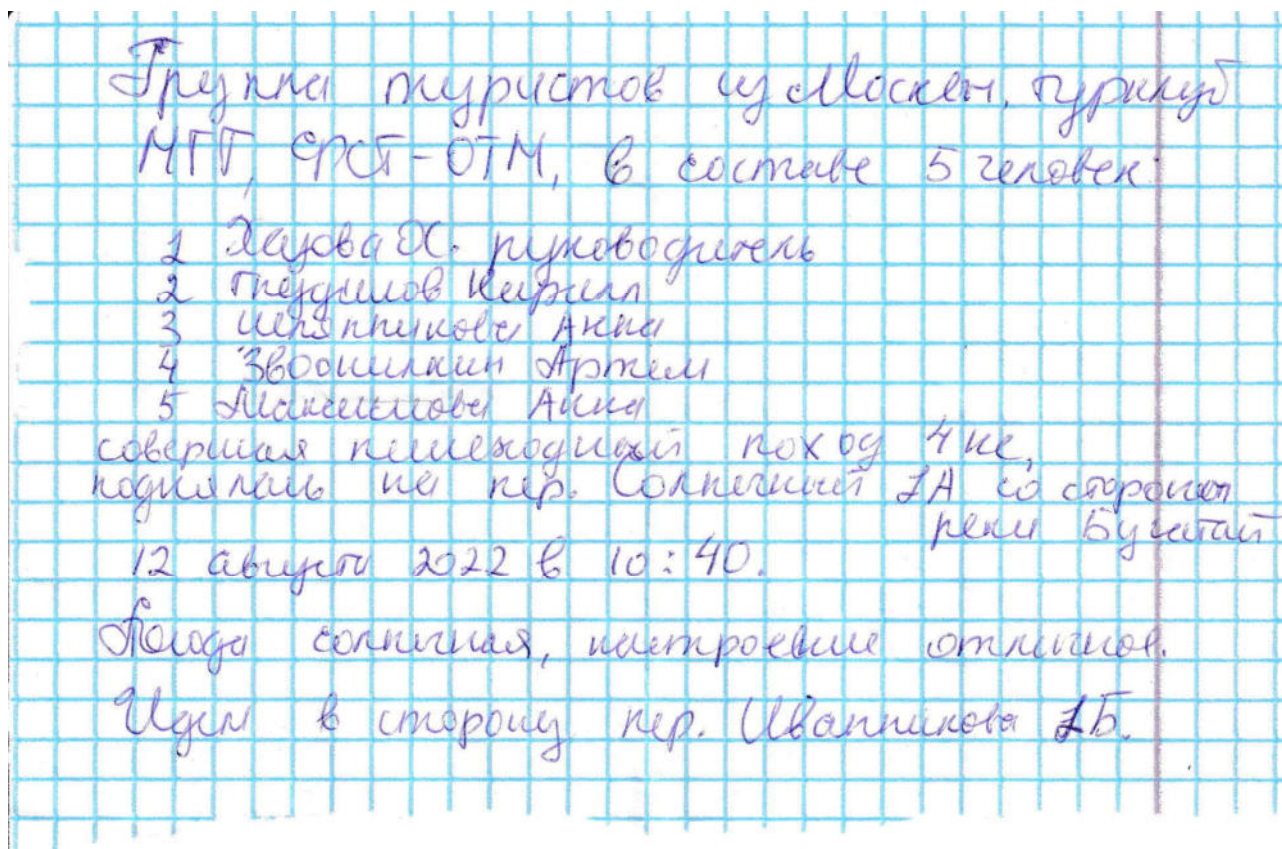 Группа туристов из Москвы, турклуб
МГТ, ФСТ-ОТМ, в составе 5 человек:
1 руководитель
2 Гнездилов Кирилл
3 Анна
4 Звонилкин Артем
5 Максимова Анна
совершая пешеходный поход 4 кс,
поднялась на пер. Солнечный 1А со стороны
реки Бугатай
12 августа 2022 в 10:40.
Погода солнечная, настроение отличное.
Идем в сторону пер. Иванникова 1Б.